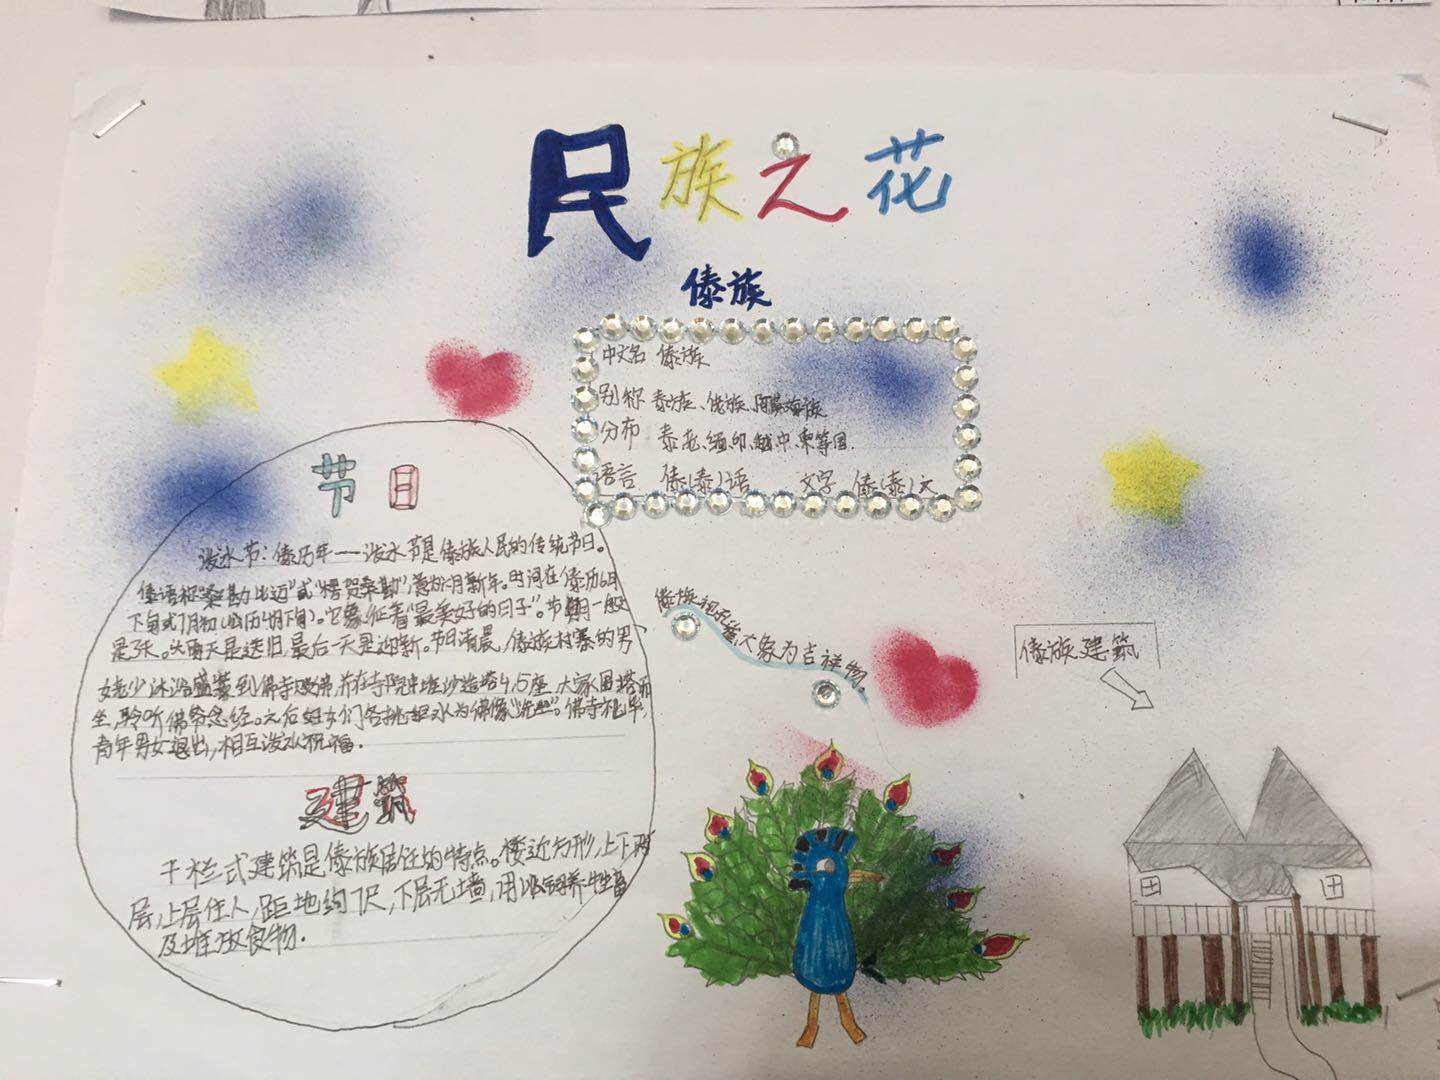 民族之花
傣族
中文名 傣族
别称 泰族、佬族、阿萨姆族
分布 泰、老、缅、印、越、中、柬等国.
语言 傣(泰)语 文字 傣(泰)文
节日
泼水节：傣历年——泼水节是傣族人民的传统节日。
傣语称"桑勘比迈"或"楞贺桑勘",意为六月新年。时间在傣历6月
下旬或7月初(公历4月下旬)。它象征着"最美好的日子"。节期一般
是3天。头两天是送旧,最后一天是迎新。节日清晨,傣族村寨的男
女老少沐浴盛装到佛寺赕佛,并在寺院中堆沙造塔4,5座,大家围塔而
坐,聆听佛爷念经。之后妇女们各挑担水为佛像"洗尘"。佛寺礼毕,
青年男女退出,相互泼水祝福.
建筑
干栏式建筑是傣族居住的特点。楼近方形,上下两
层,上层住人,距地约7尺,下层无墙,用以饲养牲畜
及堆放食物.
傣族视孔雀、大象为吉祥物.
傣族建筑